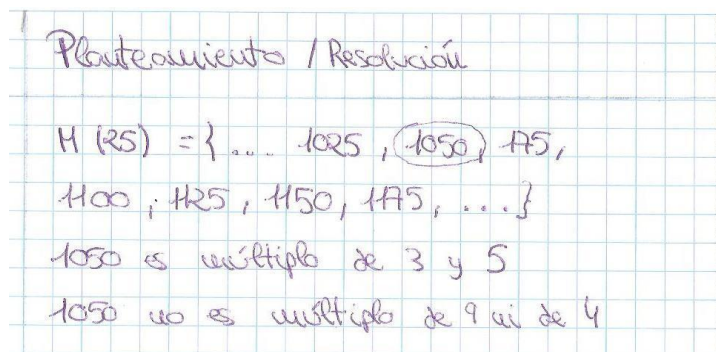 Planteamiento / Resolución
M (25) = { ... 1025 , 1050, 175,
1100 , 1125 , 1150, 1175, .... }
1050 es múltiplo de 3 y 5
1050 no es múltiplo de 9 ni de 4